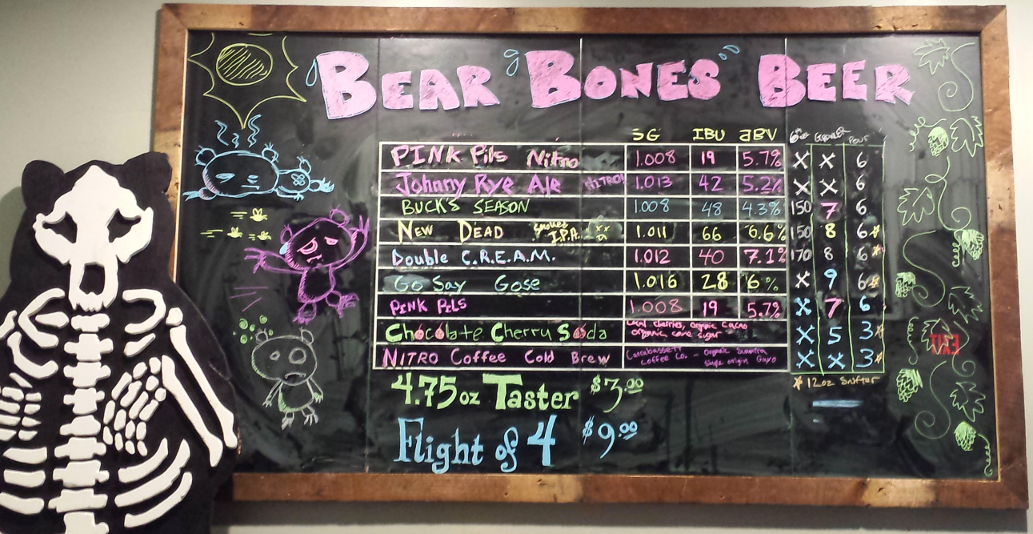 BEAR BONES BEER
SG IBU ABV 6oz Growl Pour
PINK Pils Nitro 1.008 19 5.7% X X 6
Johnny Rye Ale NITRO! 1.013 42 5.2% X X 6
BUCK'S SEASON 1.008 48 4.3% 150 7 6
NEW DEAD Smoked I.P.A. 1.011 66 6.6% 150 8 6*
Double C.R.E.A.M. 1.012 40 7.1% 170 8 6*
Go Say Gose 1.016 28 6% X 9 6*
PINK PILS 1.008 19 5.7% X 7 6
Chocolate Cherry Soda Local cherries, organic cacao X 5 3*
organic cane sugar
NITRO Coffee Cold Brew Carrabassett Coffee Co. - Organic Sumatra X X 3*
single origin Gayo
* 12oz Snifter
4.75oz Taster $3.00
Flight of 4 $9.00
EXIT